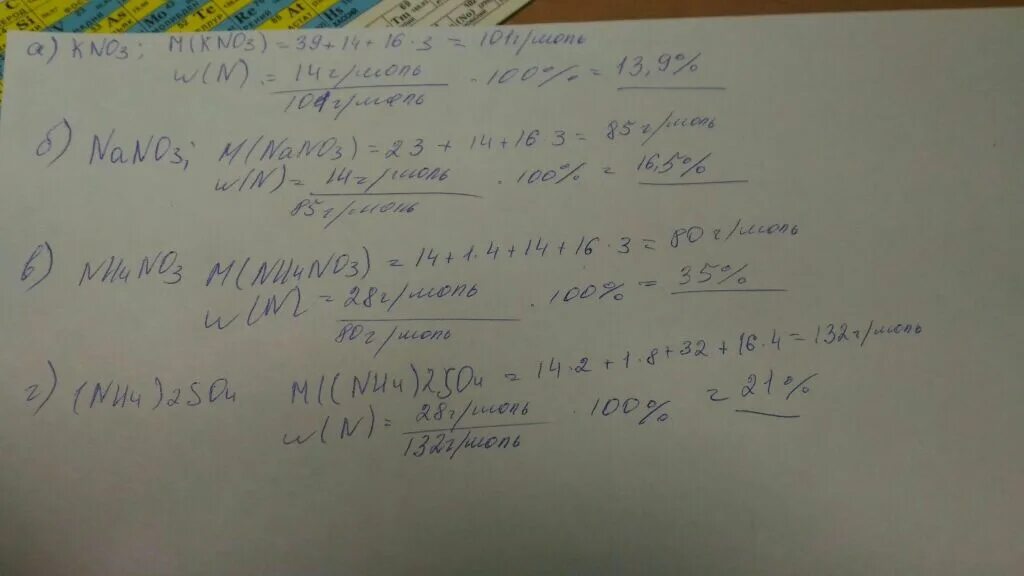 Si As Mo Te Re At Hs Tm (No)
а) KNO3; M(KNO3) = 39 + 14 + 16 · 3 = 101 г/моль
w(N) = 14 г/моль / 101 г/моль · 100% = 13,9%
б) NaNO3; M(NaNO3) = 23 + 14 + 16 3 = 85 г/моль
w(N) = 14 г/моль / 85 г/моль · 100% = 16,5%
в) NH4NO3 M(NH4NO3) = 14 + 1·4 + 14 + 16 · 3 = 80 г/моль
w(N) = 28 г/моль / 80 г/моль · 100% = 35%
г) (NH4)2SO4 M((NH4)2SO4 = 14·2 + 1·8 + 32 + 16·4 = 132 г/моль
w(N) = 28 г/моль / 132 г/моль · 100% = 21%